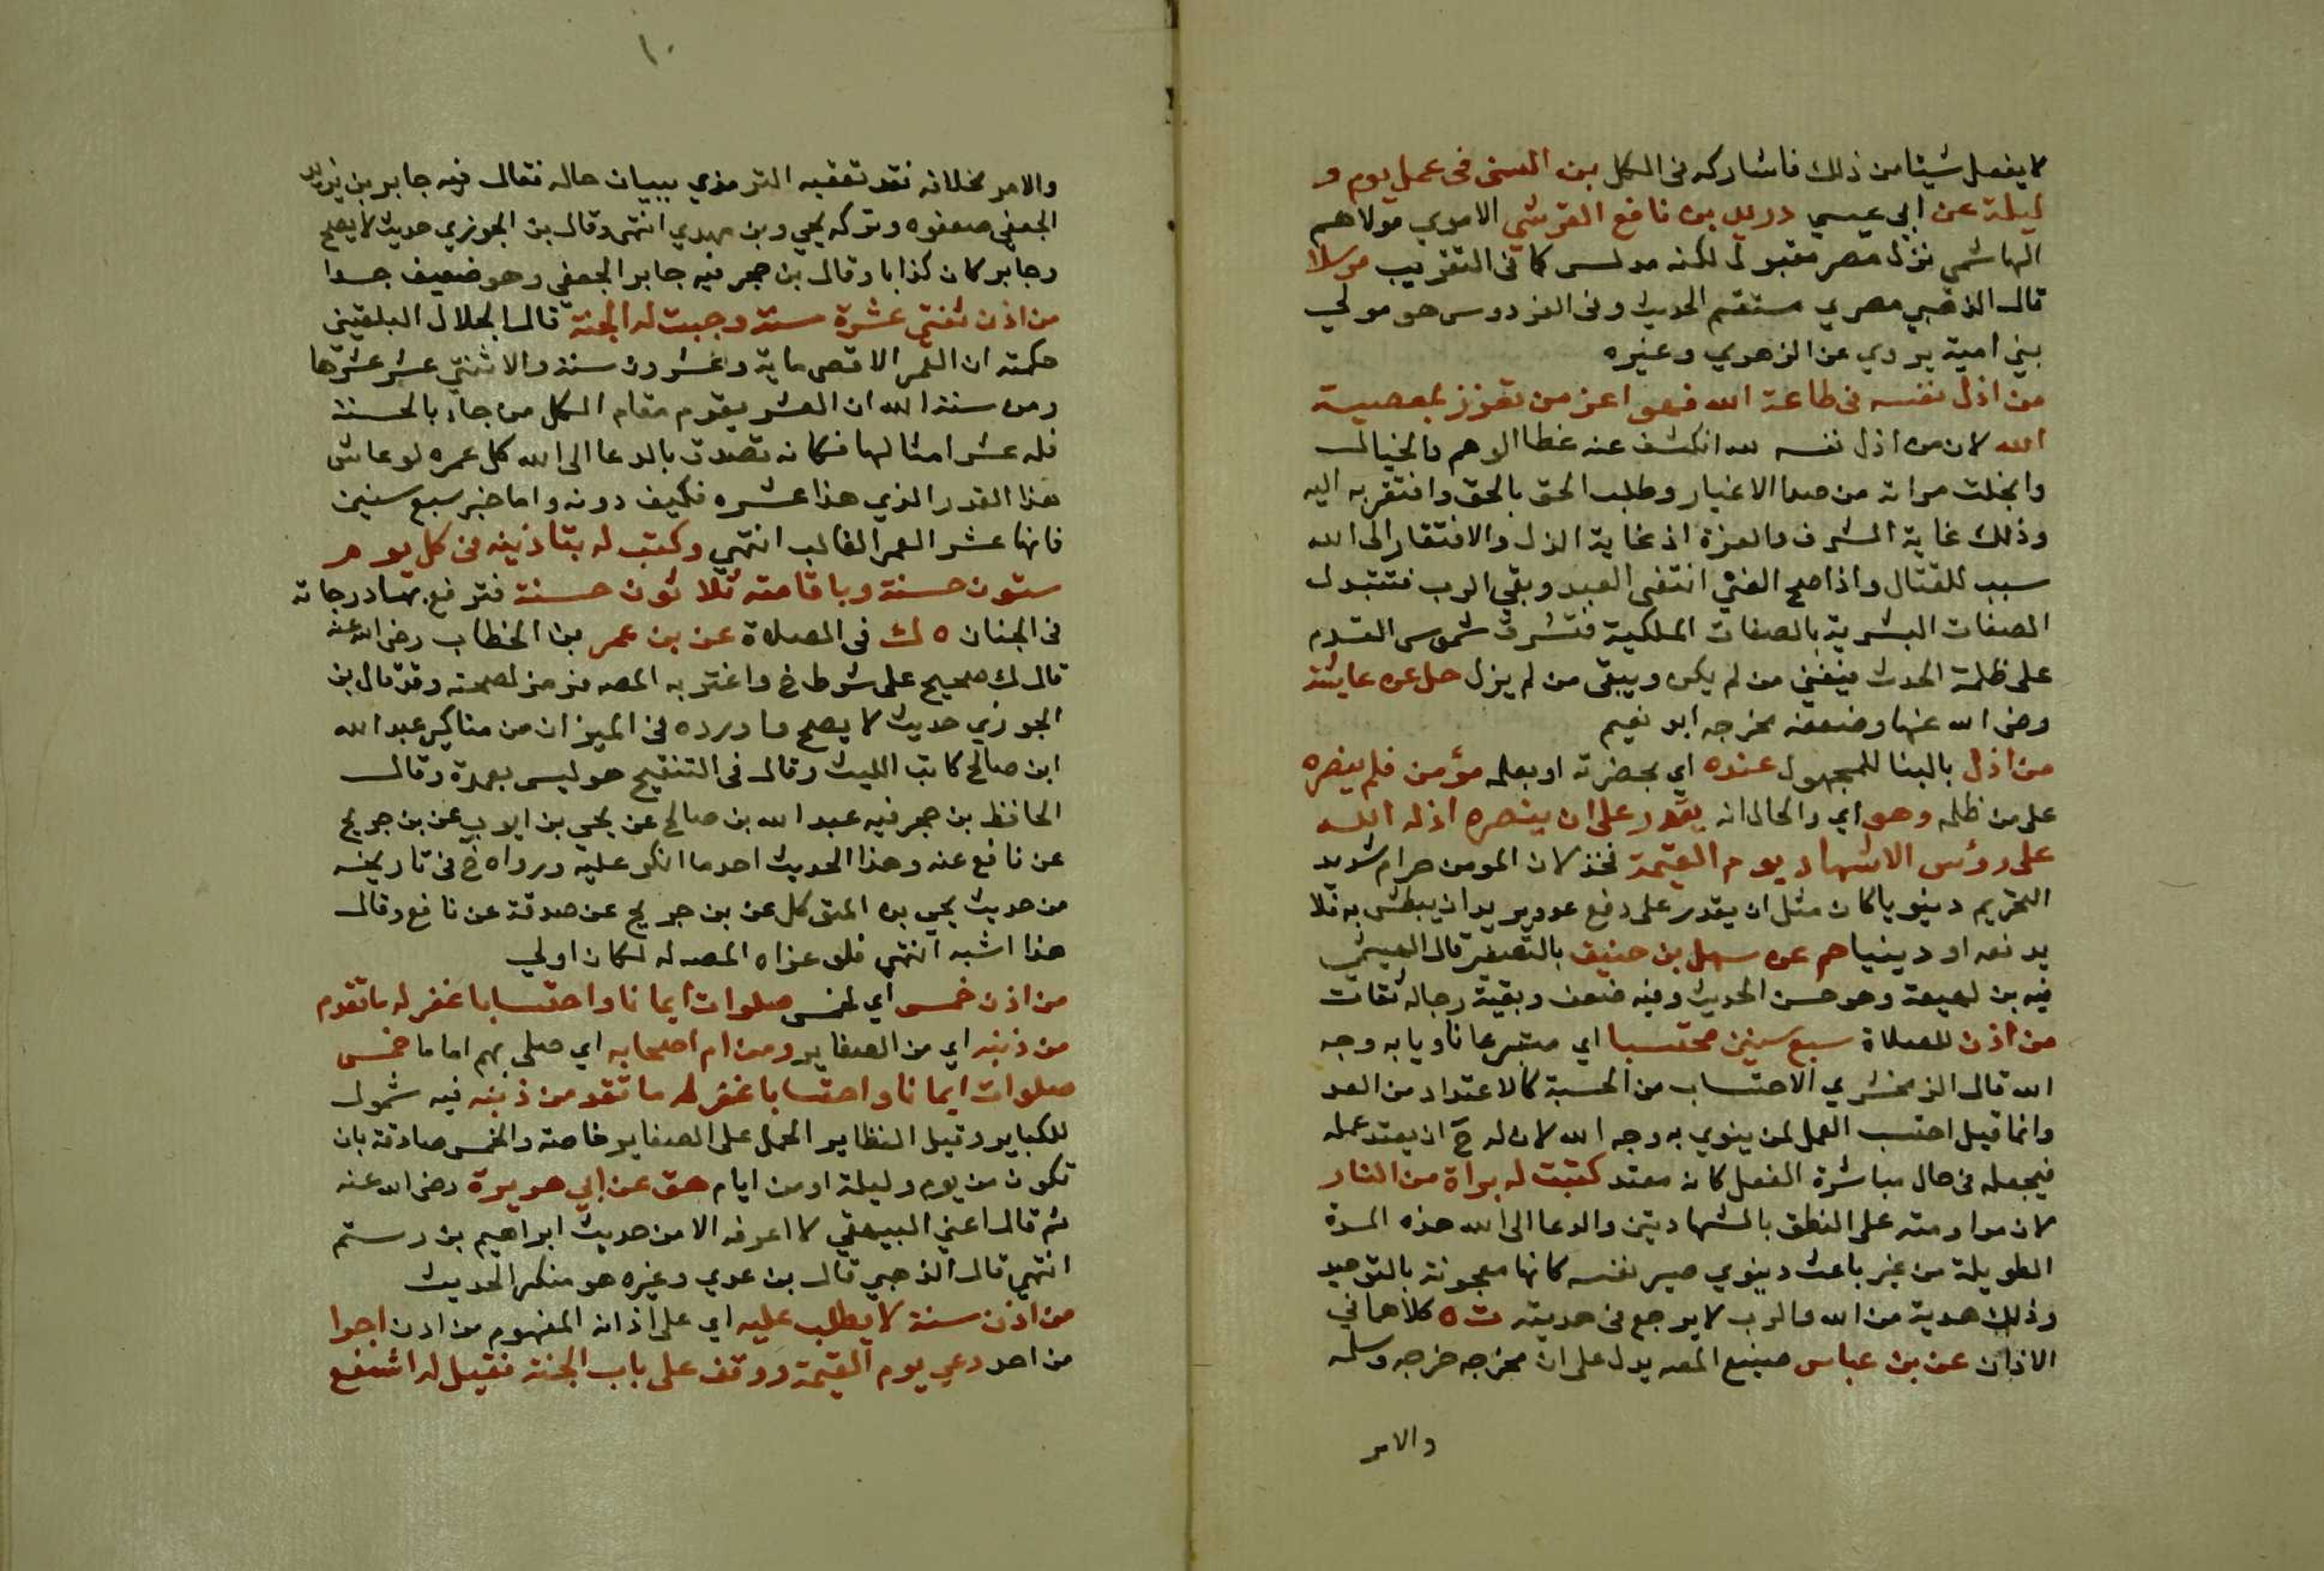 لا يفعل شيئا من ذلك فاشاركه في الكل بن السني في عمل يوم و
ليلة عن ابي عيسي دريد بن نافع القرشي الاموي مولاهم
الهاشمي نزل مصر مقبول لكنه مدلس كما في التقريب مرسلا
قال الذهبي مصري مستقيم الحديث وفي الفردوس هو مولي
بني امية يروي عن الزهري وغيره
من اذل نفسه في طاعة الله فهو اعز من تعزز بمعصية
الله لان من اذل نفسه لله انكشف عنه غطا الوهم والخيال
وانجلت مراته من صدا الاغيار وطلب الحق بالحق وافتقر به اليه
وذلك غاية الشرف والعزة اذ غاية الذل والافتقار الى الله
سبب للقتال واذا صح الفني انتفى العبد وبقي الرب فتتبدل
الصفات البشرية بالصفات الملكية فتشرق شموس القدم
على ظلمة الحدث فيفني من لم يكن ويبقى من لم يزل حل عن عايشة
رضي الله عنها وضعفه مخرجه ابو نعيم
من اذل بالبنا للمجهول عنده اي بحضرته او بعلمه مؤمن فلم ينصره
على من ظلمه وهو اي والحال انه يقدر على ان ينصره اذله الله
على رؤس الاشهاد يوم القيمة فخذلان المومن حرام شديد
التحريم دينويا كان مثل ان يقدر على دفع عدو يريد ان يبطش به فلا
يدفعه او دينيا حم عن سهل بن حنيف بالتصغير قال الهيثمي
فيه بن لهيعة وهو حسن الحديث وفيه ضعف وبقية رجاله ثقات
من اذن للصلاة سبع سنين محتسبا اي متبرعا ناويا به وجه
الله قال الزمخشري الاحتساب من الحسبة كالاعتداد من العد
وانما قيل احتسب العمل لمن ينوي به وجه الله لان له ح ان يعتد عمله
فيجعله في حال مباشرة الفعل كانه معتد كتبت له براة من النار
لان مداومته على النطق بالشهادتين والدعا الى الله هذه المدة
الطويلة من غير باعث دينوي صير نفسه كانها معجونة بالتوحيد
وذلك هدية من الله والرب لا يرجع في هديته ت ه كلاهما في
الاذان عن بن عباس صنيع المصه يدل على ان مخرجه خرجه وسلمه
والامر
١٠
والامر بخلافه فقد تعقبه الترمذي ببيان حاله فقال فيه جابر بن يزيد
الجعفي ضعفوه وتركه يحي وبن مهدي انتهى وقال بن الجوزي حديث لا يصح
وجابر كان كذابا وقال بن حجر فيه جابر الجعفي وهو ضعيف جدا
من اذن ثنتي عشرة سنة وجبت له الجنة قال الجلال البلقيني
حكمته ان العمر الاقصى ماية وعشرون سنة والاثنتي عشر عشرها
ومن سنة الله ان العشر يقوم مقام الكل من جاء بالحسنة
فله عشر امثالها فكانه تصدق بالدعا الى الله كل عمره لو عاش
هذا القدر الذي هذا عشره فكيف دونه واما خبر سبع سنين
فانها عشر العمر الغالب انتهي وكتب له بتاذينه في كل يوم
ستون حسنة وباقامته ثلاثون حسنة فترفع بها درجاته
في الجنان ه ك في الصلاة عن بن عمر بن الخطاب رضي الله عنه
قال ك صحيح على شرط خ واغتر به المصه فرمز لصحته وقد قال بن
الجوزي حديث لا يصح واورده في الميزان من مناكير عبد الله
ابن صالح كاتب الليث وقال في التنقيح هو ليس بعمدة وقال
الحافظ بن حجر فيه عبد الله بن صالح عن يحي بن ايوب عن بن جريج
عن نافع عنه وهذا الحديث احد ما انكر عليه ورواه خ في تاريخه
من حديث يحي بن المتوكل عن بن جريج عن صدقة عن نافع وقال
هذا اشبه انتهى فلو عزاه المصه له لكان اولي
من اذن خمس اي لخمس صلوات ايمانا واحتسابا غفر له ما تقدم
من ذنبه اي من الصغاير ومن ام اصحابه اي صلى بهم اماما خمس
صلوات ايمانا واحتسابا غفر له ما تقدم من ذنبه فيه شمول
للكباير وقيل النظاير الحمل على الصغاير خاصة والخمس صادقة بان
تكون من يوم وليلة او من ايام هق عن ابي هريرة رضي الله عنه
ثم قال اعني البيهقي لا اعرفه الا من حديث ابراهيم بن رستم
انتهي قال الذهبي قال بن عدي وغيره هو منكر الحديث
من اذن سنة لا يطلب عليه اي على اذانه المفهوم من اذن اجرا
من احد دعي يوم القيمة ووقف على باب الجنة فقيل له اشفع